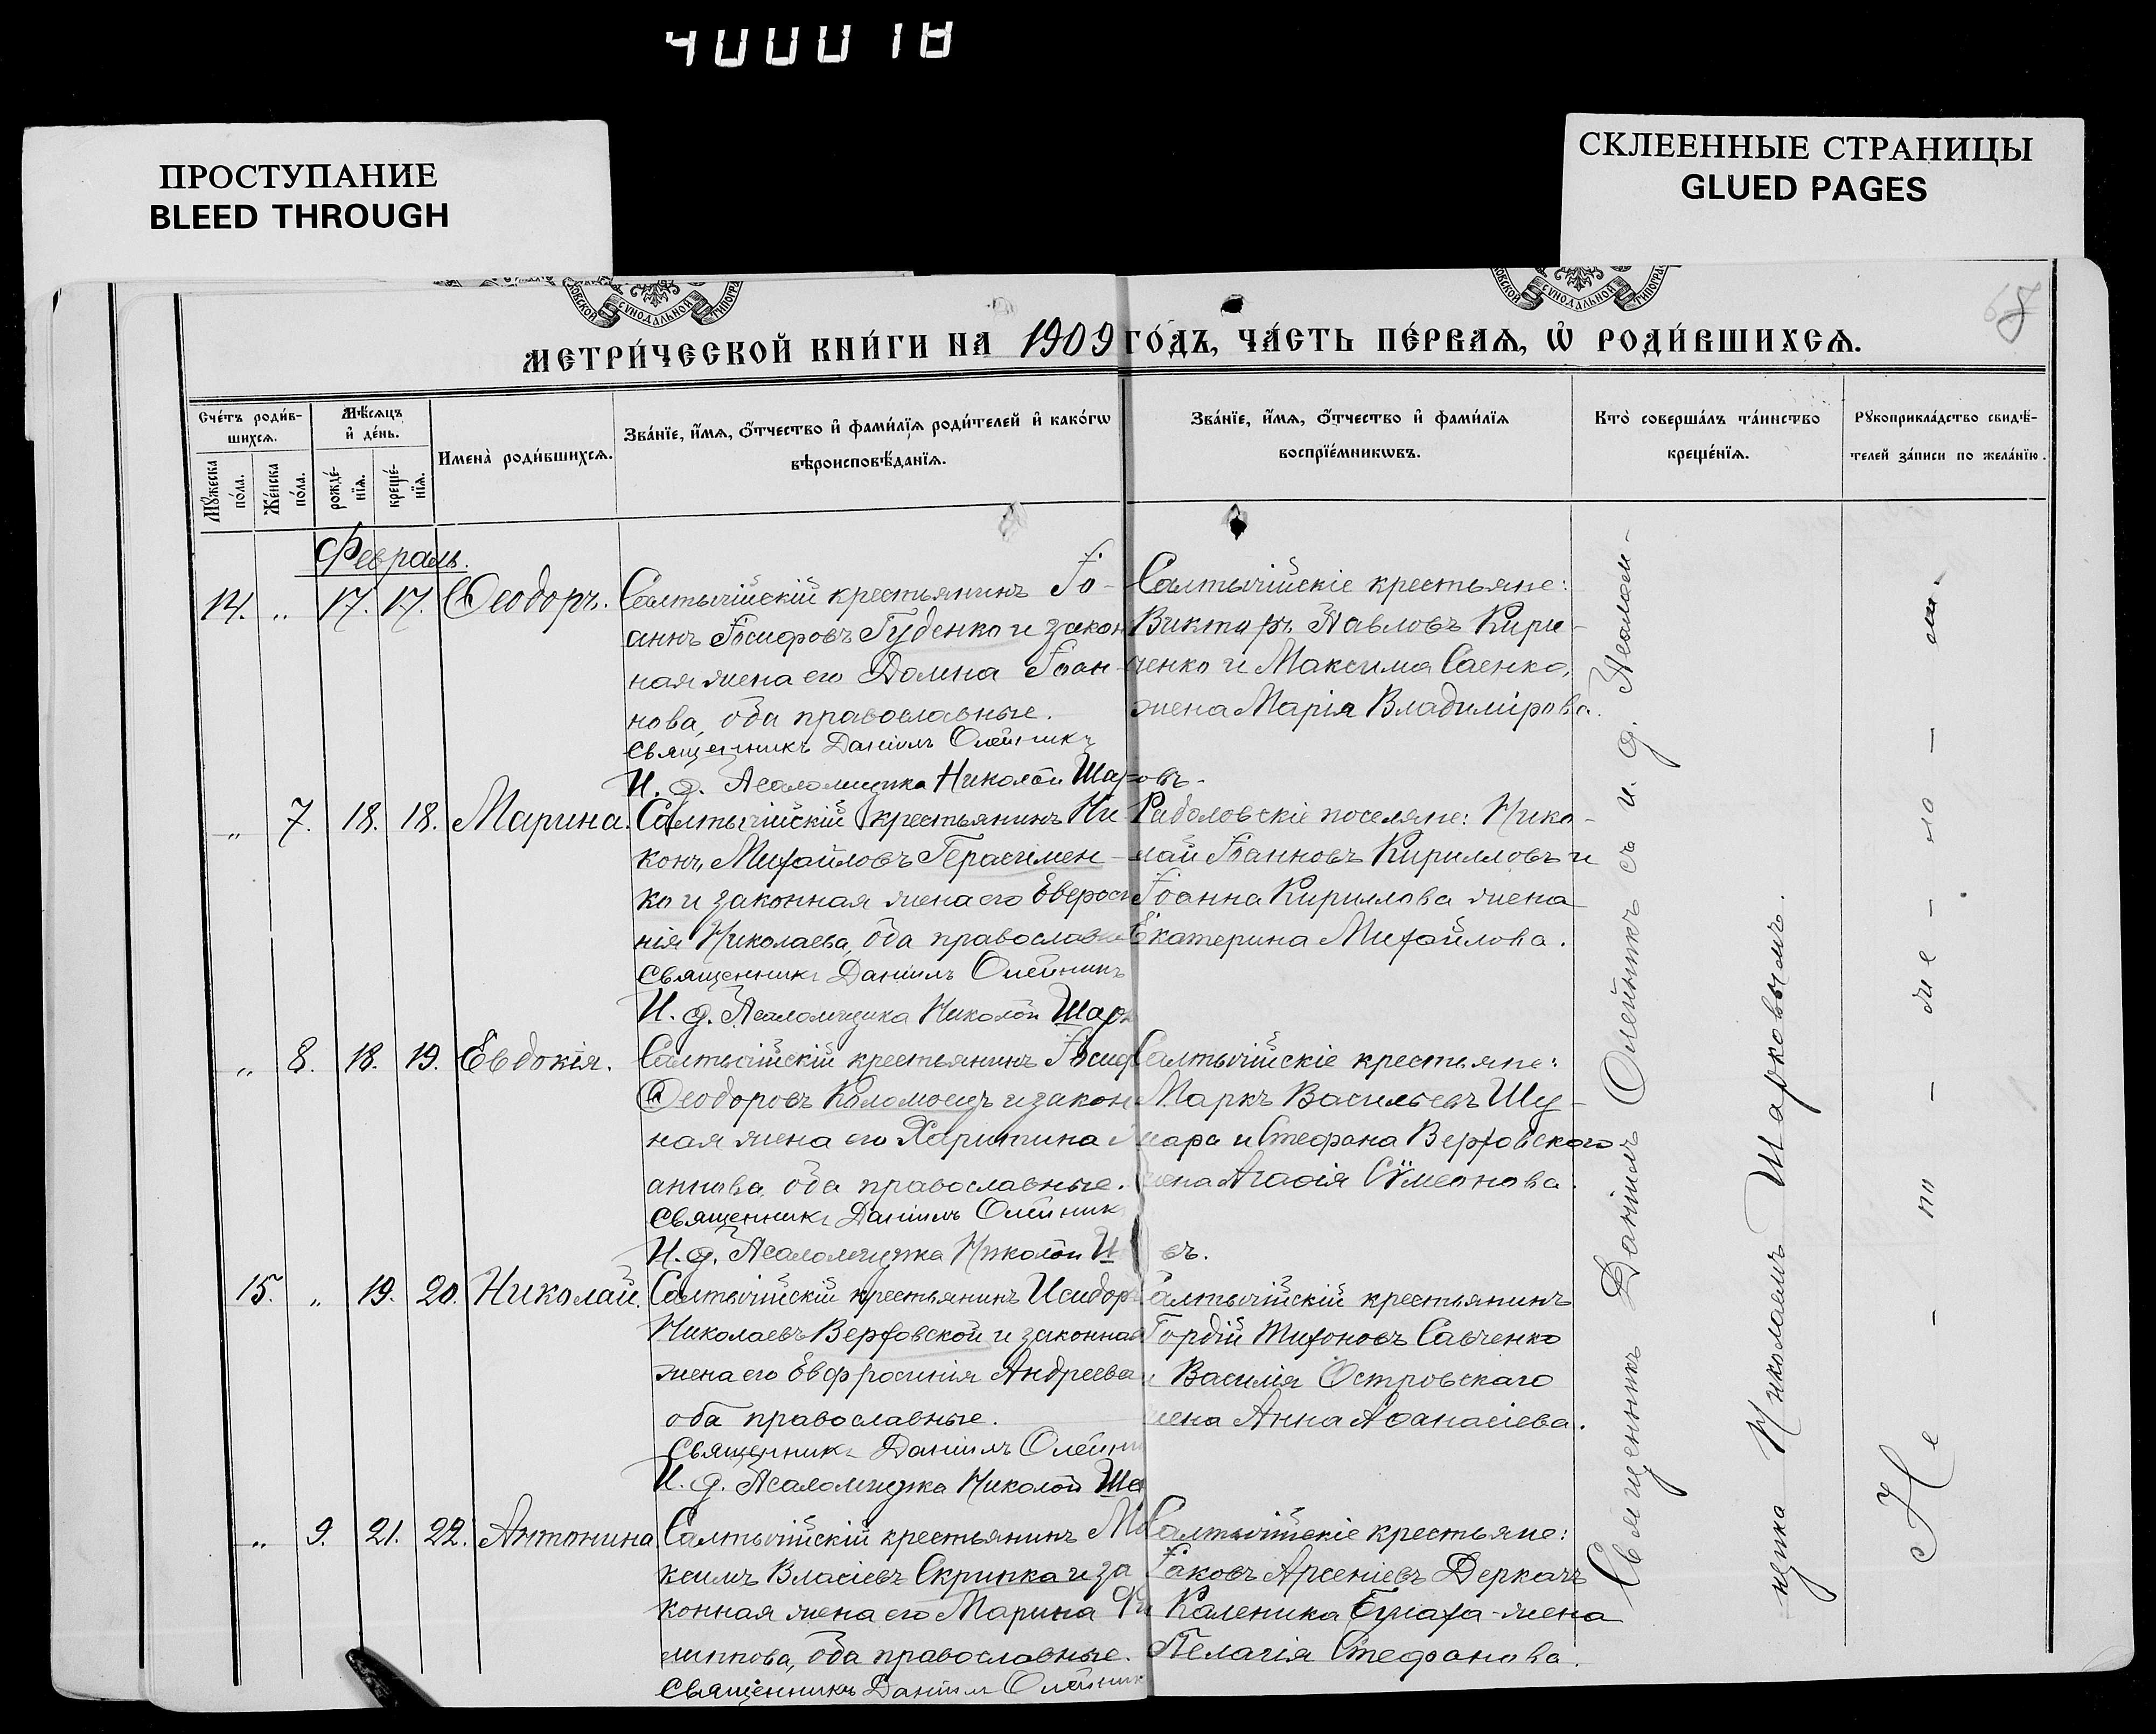 400018
ПРОСТУПАНИЕ
BLEED THROUGH
СКЛЕЕННЫЕ СТРАНИЦЫ
GLUED PAGES
МЕТРИ́ЧЕСКОЙ КНИ́ГИ НА 1909 ГО́ДЪ, ЧА́СТЬ ПЕ́РВАЯ, Ѡ҆ РОДИ́ВШИХСЯ.
Сче́тъ роди́в-
шихся.
Мꙋ́жеска по́ла.
Же́нска по́ла.
Мѣ́сяцъ и҆ де́нь.
рожде́-
нїя.
креще́-
нїя.
Имена̀ роди́вшихся.
Зва́нїе, и҆́мя, ѻ҆́тчество и҆ фами́лїя роди́телей и҆ како́гѡ
вѣроисповѣ́данїя.
Зва́нїе, и҆́мя, ѻ҆́тчество и҆ фами́лїя
воспрїе́мникѡвъ.
Кто̀ соверша́лъ та́инство
креще́нїя.
Рꙋкоприкла́дство свидѣ́-
телей за́писи по жела́нїю.
Февраль.
14. „ 17. 17. Ѳеодоръ.
Салтычійскій крестьянинъ Іо-
аннъ Іосифовъ Гуденко и закон
ная жена его Домна Іоан-
нова, оба православные.
Священникъ Даніилъ Олейникъ
И. д. Псаломщика Николай Шарковъ.
Салтычійскіе крестьяне:
Викторъ Павловъ Кири-
ченко и Максима Саенко,
жена Марія Владимірова.
„ 7. 18. 18. Марина.
Салтычійскій крестьянинъ Ни
конъ Михайловъ Герасимен-
ко и законная жена его Евероси
нія Николаева, оба православные
Священникъ Даніилъ Олейникъ
И. д. Псаломщика Николай Шарк
поселяне: Нико-
лай Іоанновъ Кирилловъ и
Іоанна Кириллова жена
Екатерина Михайлова.
„ 8. 18. 19. Евдокія.
Салтычійскій крестьянинъ Іосиф
Ѳеодоровъ Коломоецъ и закон
ная жена его Харитина
аннова, оба православные.
Священникъ Даніилъ Олейник
И. д. Псаломщика Николай Ш въ.
Салтычійскіе крестьяне:
Маркъ Васильевъ
и Стефана Верховского
жена Агафія Сѵмеонова.
15. „ 19. 20. Николай.
Салтычійскій крестьянинъ Исидоръ
Николаевъ Верховской и законная
жена его Евфросинія Андреева
оба православные.
Священникъ Даніилъ Олейни
И. д. Псаломщика Николай Ша
Салтычійскій крестьянинъ
Гордій Тихоновъ Савченко
и Василія Островскаго
жена Анна Аѳанасіева.
„ 9. 21. 22. Антонина
Салтычійскій крестьянинъ Ма
ксимъ Власіевъ Скрипка и за
конная жена его Марина Фи
липпова, оба православные.
Священникъ Даніилъ Олейник
Салтычійскіе крестьяне:
Іаковъ Арсеніевъ Деркачъ
Каленика жена
Пелагія Стефанова.
Священникъ Даніилъ Олейникъ съ и. д. Псалом-
щика Николаемъ Шарковымъ.